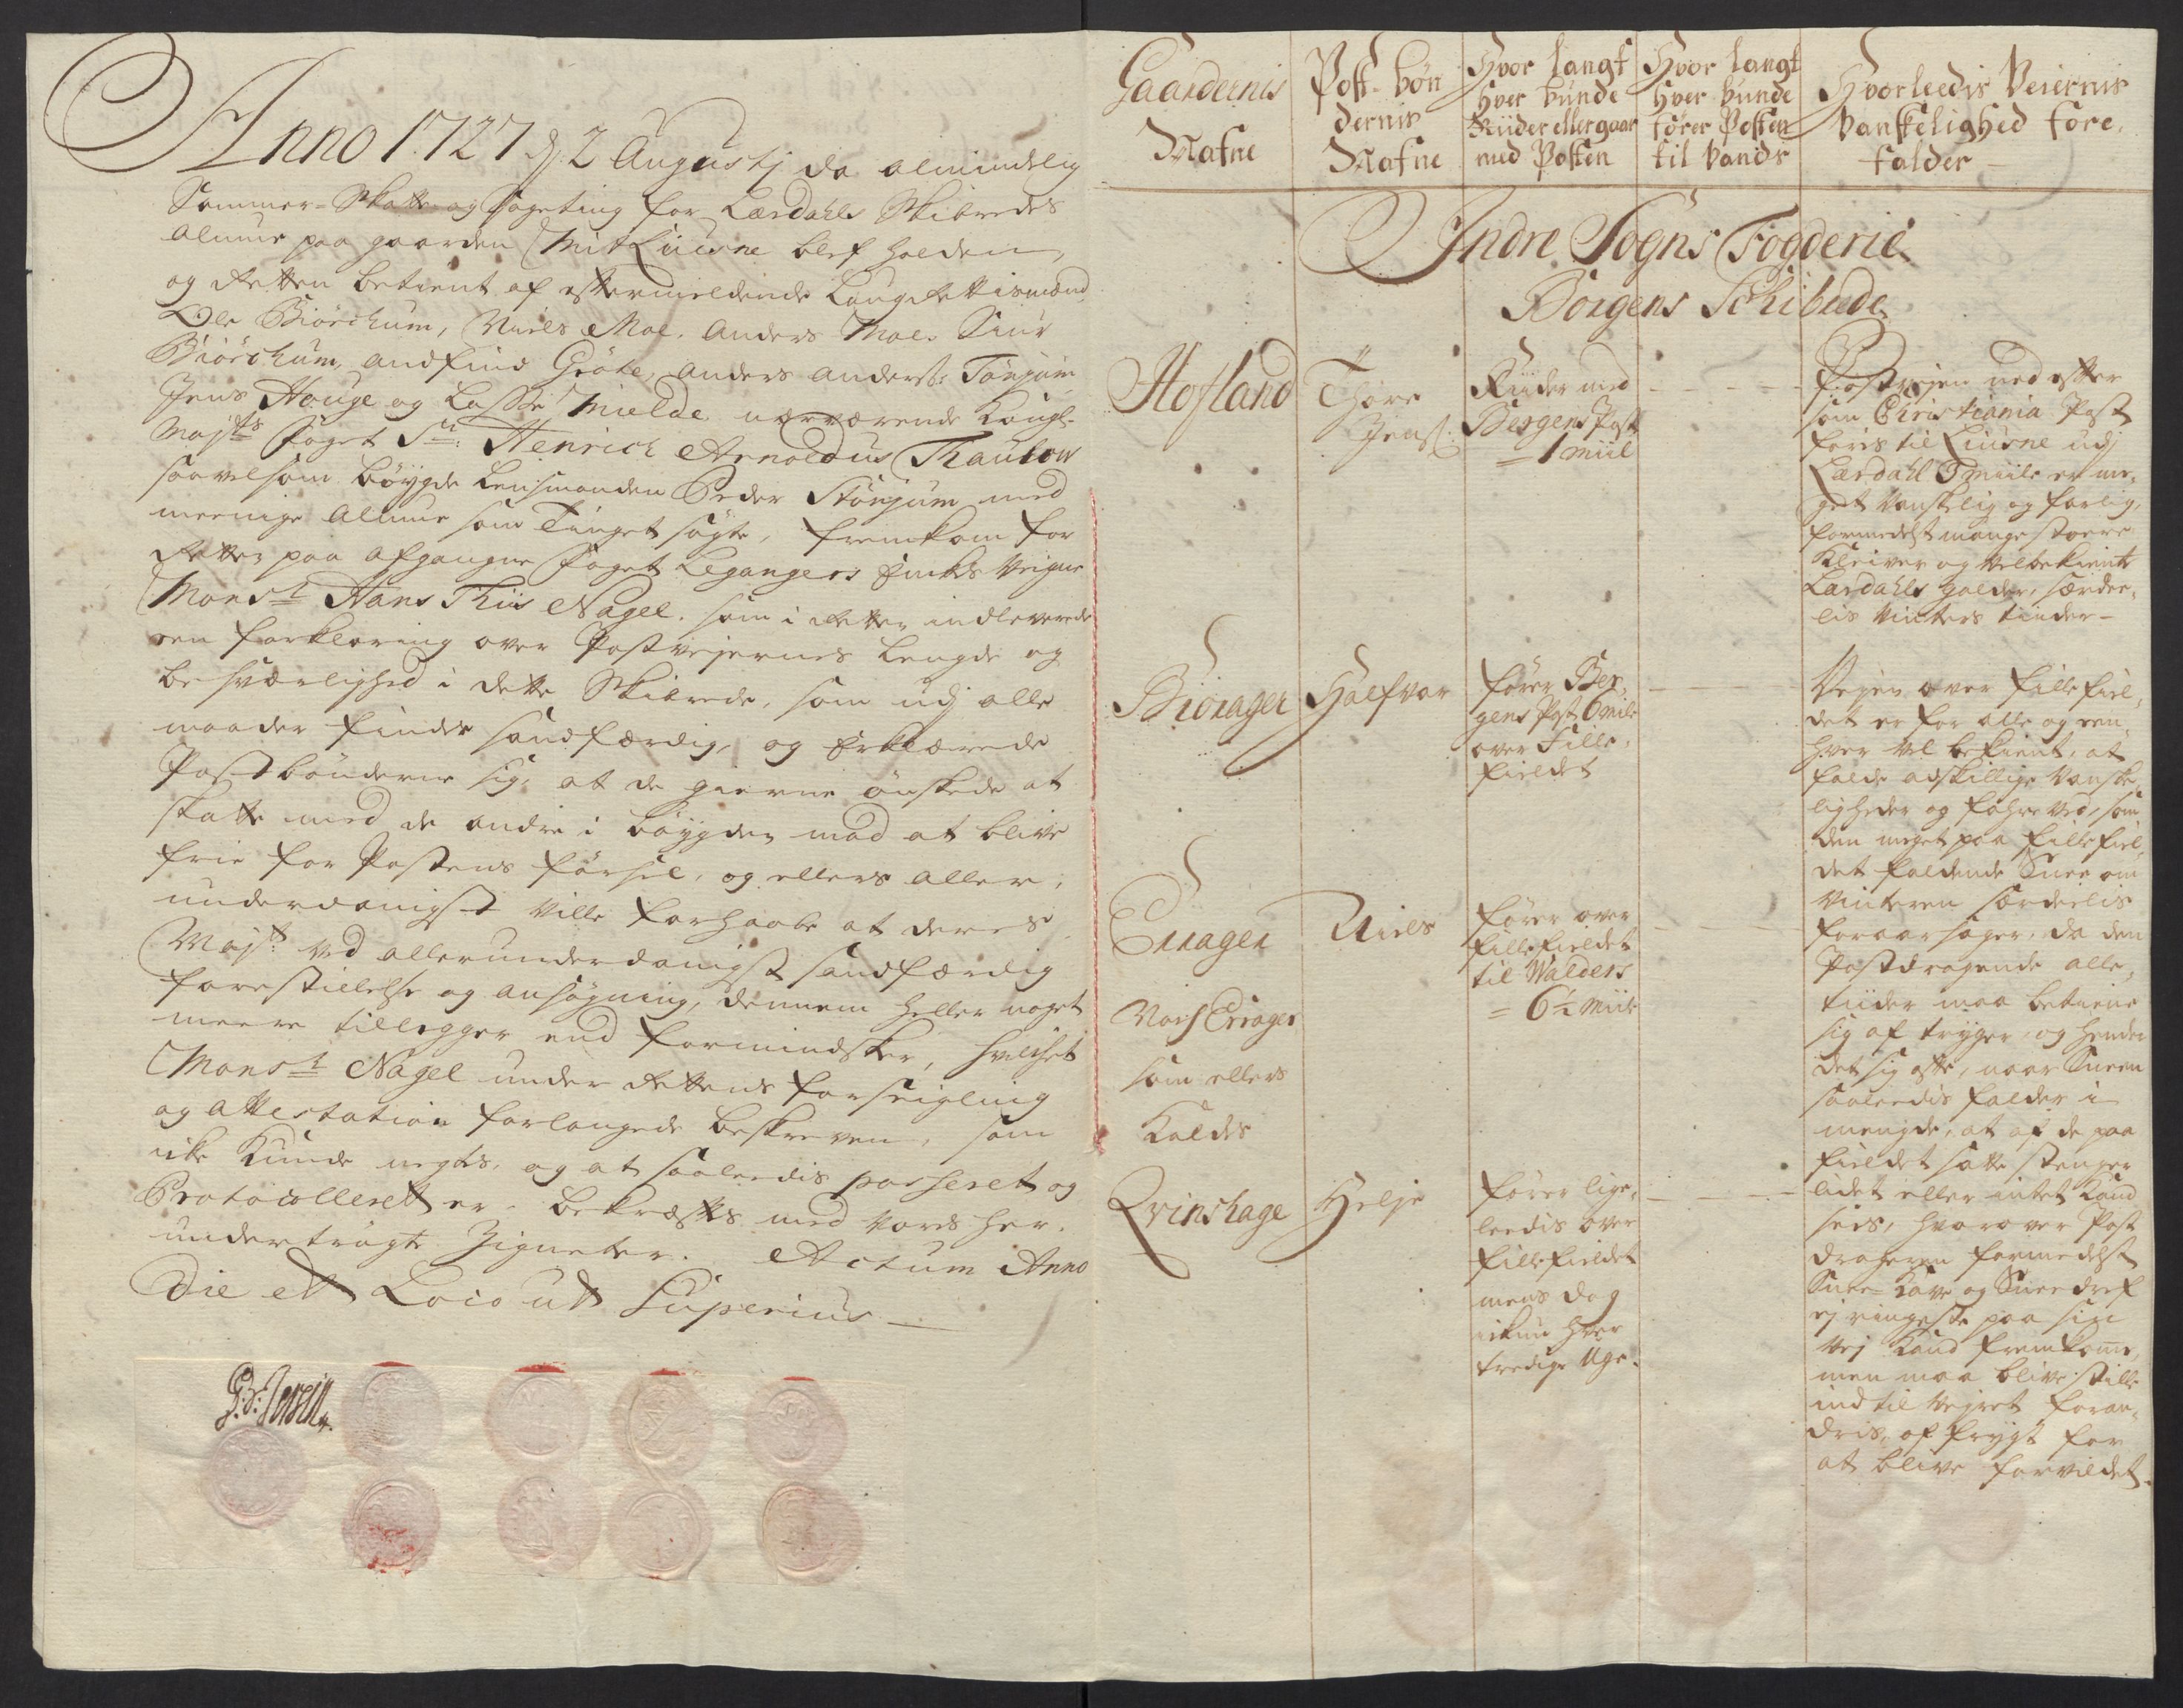 Anno 1727 d: 2 Augustj da almindelig
Sommer-Skatte og Sageting for Lærdahls Skibredes
Almue paa gaarden Mit Liusne blef holden,
og Retten betient af eftermeldende Laugrettismænd
Ole Biørchum, Niels Moe. Anders Moe. Siur
Biørchum, Andfind Grøte, Anders Anders: Tønjum
Jens Houge og Lasse Mielde nærværende Kongl.
Majts Foget Sr: Henrich Arnoldus Thaulow
saavelsom bøygde Lensmanden Peder Stønjum med
meenige Almue som Tinget søgte, fremkom for
Retten paa afgangne Foget Legangers Enkes Veigne
Monsr Hans Thiis Nagel. som i Retten indleverede
een forklaring over Postvejernes Lengde og
besværlighed i dette Skibrede, som udj alle
maader findes sandfærdig, og Erklærede
Postbønderne sig, at de gierne ønskede at
skatte med de andre i bøygden mod at blive
frie for Postensførsel, og ellers aller,
underdanigst ville forhaabe at deres
Majt: ved allerunderdanigst sandfærdig
forestillelse og ansøgning, dennem heller noget
meere tillegger end formindsker, hvilchet
Monsr Nagel under Rettens forseigling
og attestation forlangede beskreven, som
icke kunde negtes, og at saaleedis passeret og
Protocolleret er. bekræftes med vores her.
undertrøgte Zigneter. Actum Anno
Die et Loco ut Superius
Gaardernis
Nafne
Post-bøn
dernis
Nafne
Hvor langt
hver bunde
Riider eller gaar
med Posten
Hvor langt
hver bunde
fører Posten
til Vands
Hvorleedis Veiernis
Vanskelighed fore,
falder
Indre Sogns Fogderie
Borgens Schibrede
Hofland
Thore
Jens:
Riider med
Bergens Post
= 1 miil
Postvejen ned efter
som Christiania Post
føris til Liusne udj
Lærdahl 3 miile er me,
get Vanskelig og farlig,
formedelst mange stoere
Kleiver og velbekiente
Lærdahls galder, særdee,
lis Vinters tiider-
Biørager
Halfvor
fører Ber,
gens Post 6 mile
over Fille,
fieldet
Vejen over fillefiel,
det er for alle og een,
hver vel bekient, at
falde adskillige Vanske,
ligheder og fahre ved, som
den meget paa fillefiel,
det faldende Snee om
Vinteren særdeelis
foraarsager, da den
Postdragende alle,
tiider maa betiene
sig af tryger, og hender
det sig ofte, naar Sneen
saaleedis falder i
mengde, at af de paa
fieldet satte stenger
lidet eller intet kand
sees, hvorover Post
drageren formedelst
Snee-Kave og Sneedref
ej ringeste paa sin
Vej kand fremkome,
men maa blive stille
ind til Vejret foran,
dris, af frygt for
at blive forvildet.
Errager
Niels
fører over
fillefieldet
til Walders
= 6½ Miile
som ellers
Kaldes
Qvinshage
Helje
fører lige,
leedis over
fillefieldet
mens dog
ickun hver
tredige Uge.